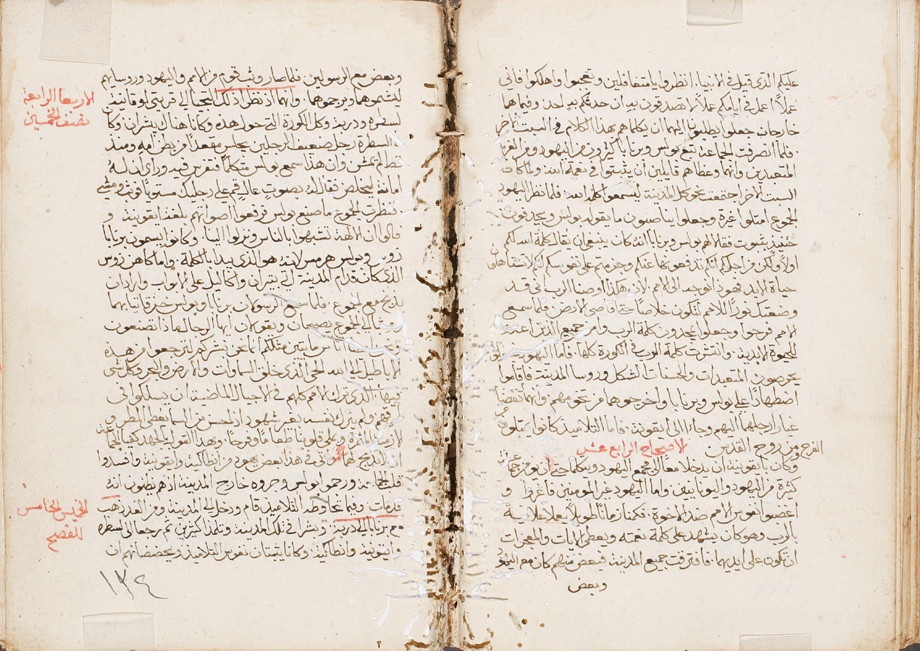 عليكم الذي قيل في الانبياء انظروا يا متغافلين وتعجبوا واهلكوا فاني
عملاً اعمل في ايامكم عملاً لا تصدقون به ان حدثكم به احد وفيما هما
خارجان جعلوا يطلبون اليهما ان يكلماهم بهذا الكلام في السبت الاخر
فلما انصرفت الجماعة تبع بولس وبرنابا كثيرون من اليهود ومن الغربا
المتعبدين وانهما وعظاهم قايلين ان يثبتوا في نعمة الله ولما كان
السبت الاخر اجتمعت نحو كل المدينة ليسمعوا كلمة الله فلما نظر اليهود
الجموع امتلوا غيرة وجعلوا يناصبون ما يقوله بولس ويجدفون
حينيذ بثبوت فقالا لهم بولس وبرنابا انه كان ينبغي ان يقال كلمة الله لكم
اولاً ولكن من اجل انكم تدفعونها عنكم وحزمتم على نفوسكم انكم لا تستاهلون
حياة الابد فهوذا نتوجه الى الامم لان هكذا اوصنا الرب اني قد
وضعتك نوراً للامم لتكون خلاصاً حتى اقاصي الارض فلما سمع
الامم فرحوا وجعلوا يمجدون كلمة الرب وامن جميع الذين اعدوا
للحيوة الابدية وانتشرت كلمة الرب في الكورة كلها فاما اليهود
يحرصون المتعبدات والحسنات الشكل وروسا المدينة فاقاموا
اضطهاداً على بولس وبرنابا واخرجوهما من تخومهم وانهما نفضا
غبار ارجلهما اليهم وجاءا الى ايقونية فاما التلاميذ كانوا يمتلون من
الفرح ومن روح القدس الاصحاح الرابع عشر
وكان بايقونية ان يدخلا معاً الى مجمع اليهود ويتكلما حتى ان يومن جماعة
كثيرة من اليهود واليونانيين واما اليهود غير المومنين فاغروا و
اغضبوا نفوس الامم ضد الاخوة فمكثا زماناً طويلاً يعملا علانية
بالرب وهو كان يشهد على كلمة نعمته ويعطي الايات والمعجزات
ان تكون على ايديهما فافترقت جميع المدينة فبعض منهم كان مع اليهود
وبعض
وبعض مع الرسولين فلما صار وثب قوم من الامم واليهود وروسايهم
ليشتموهما ويرجموهما وانهما اذ نظرا ذلك التجيا الى قرى لوقانية
لسطرة ودربة وكل الكورة التي حولها هذه وكانا هناك يبشران وكان
السطرة رجل ضعيف الرجلين يجلس مقعداً من بطن امه ومنذ
قط لم يمش وان هذا سمع بولس متكلماً فتفرس فيه وراى ان له
امانة ليخلص فقال له بصوت عال قم على رجليك مستوياً فوثب ومشى
فنظرت الجموع ما صنع بولس فرفعوا اصواتهم بلغة ايقونية و
قالوا ان الالهة تشبهوا بالناس ونزلوا الينا وكانوا يسمون برنابا
زوس وبولس هرمس لانه هو الذي يبدا بالكلمة واما كاهن زوس
الذي كانت قدام المدينة اتى بثيران واكاليل على الابواب واراد ان
يذبح مع الجموع فلما سمع الرسولان برنابا وبولس خرقا ثيابهما
الجموع يصيحان ويقولان ايها الرجال ماذا تصنعون
ونحن ايضاً اناس مايتين مثلكم انما نحن نبشركم لترجعوا من هذه
الاباطيل الى الله الحي الذي خلق السماوات والارض والبحر وكل شي
فيها الذي ترك الامم كلهم في الاجيال الماضية ان يسلكوا في
طرقهم ولم يترك نفسه بغير شهود اذ يحسن من السما يعطي المطر
الاربعا الرابعة
نصف الخمسين
ان لا تذبح لهما وفي هذا بعض يهود من انطاكية وايقونية وافسدوا
قلب الجماعة ورجموا بولس وجروه خارج المدينة اذ هم يظنون انه
قد مات وفيما احاط به التلاميذ قام ودخل الى المدينة ومن الغد ذهب
مع برنابا الى دربة وبشرا في تلك المدينة وتلمذا كثيرين ثم رجعا الى لسطرة
وايقونية وانطاكية وكانا يثبتان نفوس التلاميذ ويحضانهم ان
الخميس الخامس
للفصح
١٣٤